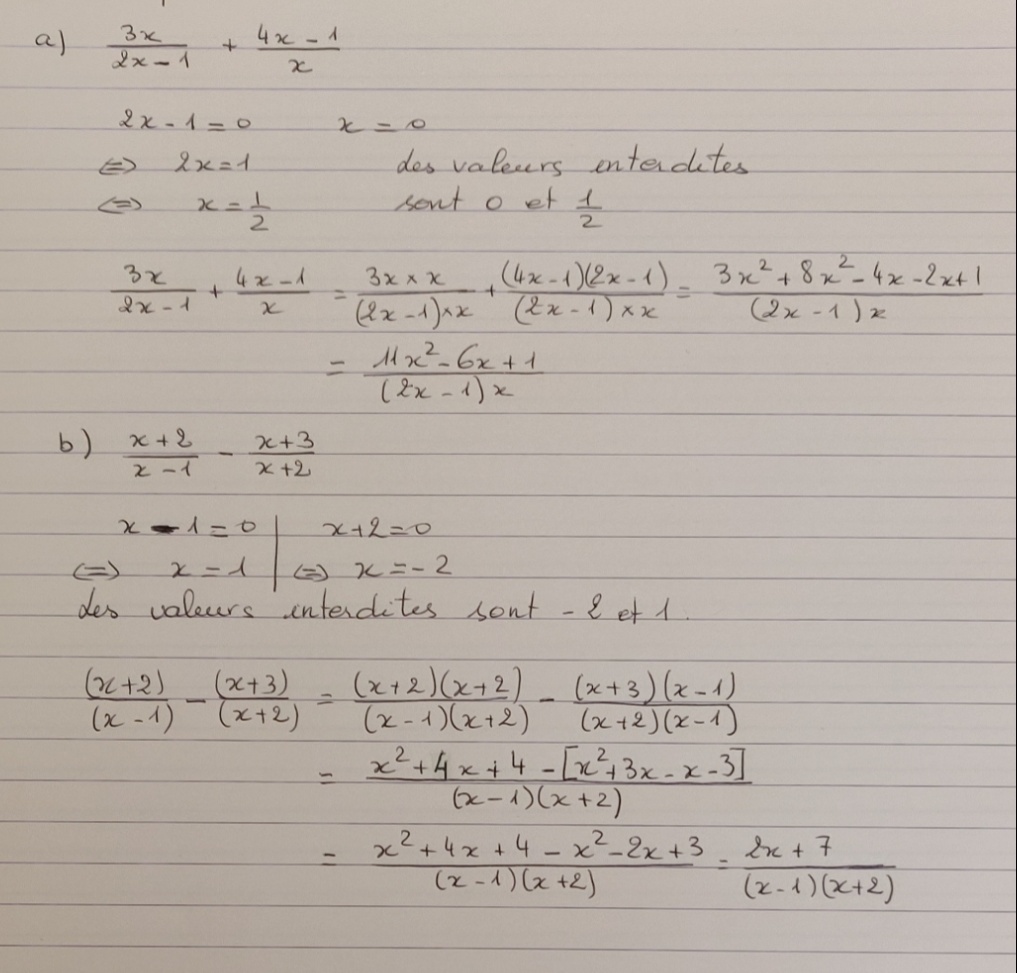 a) \frac{3x}{2x-1} + \frac{4x-1}{x}
2x-1=0 x=0
⇔ 2x=1 des valeurs interdites
⇔ x=\frac{1}{2} sont 0 et \frac{1}{2}
\frac{3x}{2x-1} + \frac{4x-1}{x} = \frac{3x×x}{(2x-1)×x} + \frac{(4x-1)(2x-1)}{(2x-1)×x} = \frac{3x²+8x²-4x-2x+1}{(2x-1)x}
= \frac{11x²-6x+1}{(2x-1)x}
b) \frac{x+2}{x-1} - \frac{x+3}{x+2}
x-1=0 | x+2=0
⇔ x=1 | ⇔ x=-2
des valeurs interdites sont -2 et 1.
\frac{(x+2)}{(x-1)} - \frac{(x+3)}{(x+2)} = \frac{(x+2)(x+2)}{(x-1)(x+2)} - \frac{(x+3)(x-1)}{(x+2)(x-1)}
= \frac{x²+4x+4-[x²+3x-x-3]}{(x-1)(x+2)}
= \frac{x²+4x+4-x²-2x+3}{(x-1)(x+2)} = \frac{2x+7}{(x-1)(x+2)}